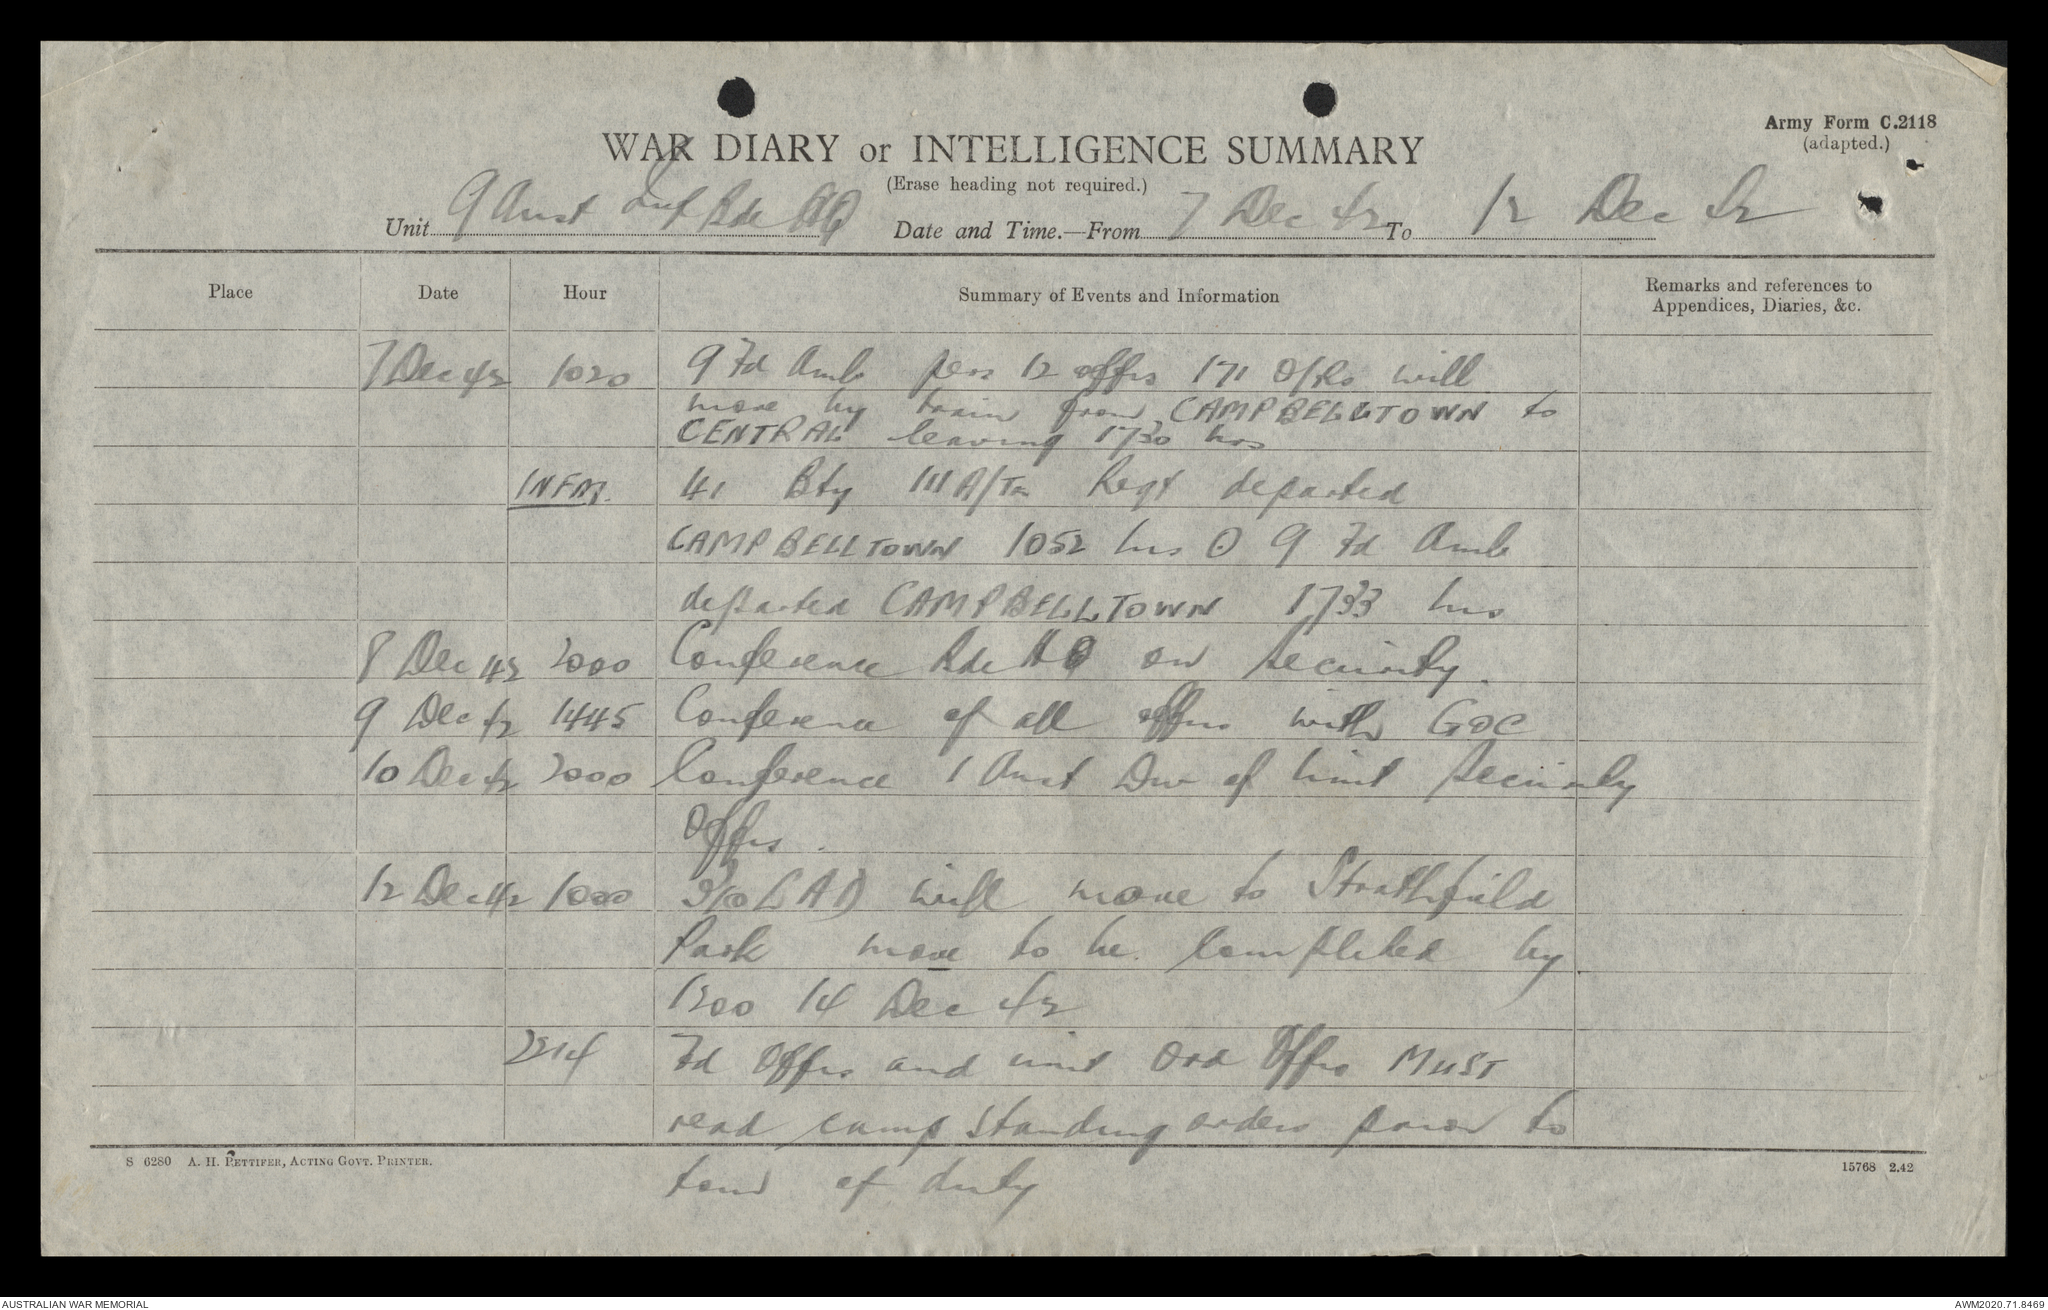 Army Form C.2118
(adapted.)
WAR DIARY or INTELLIGENCE SUMMARY
(Erase heading not required.)
Unit 9 Aust Inf Bde HQ Date and Time.—From 7 Dec 42 To 12 Dec 42
Place Date Hour Summary of Events and Information Remarks and references to
Appendices, Diaries, &c.
7 Dec 42 1020 9 Fd Amb pers 12 offrs 171 O/Rs will
move by train from CAMPBELLTOWN to
CENTRAL leaving 1730 hrs
INFM. 41 Bty 111 A/Tk Regt departed
CAMPBELLTOWN 1052 hrs ⊙ 9 Fd Amb
departed CAMPBELLTOWN 1733 hrs
8 Dec 42 2000 Conference Bde HQ on Security.
9 Dec 42 1445 Conference of all offrs with GOC
10 Dec 42 2000 Conference 1 Aust Div of Unit Security
Offrs.
12 Dec 42 1000 LAD will move to Strathfield
Park move to be completed by
1200 14 Dec 42
2214 Fd Offrs and unit Ord Offrs MUST
read camp standing orders prior to
tour of duty
S 6280 A. H. PETTIFER, ACTING GOVT. PRINTER. 15768 2.42
AUSTRALIAN WAR MEMORIAL AWM2020.71.8469